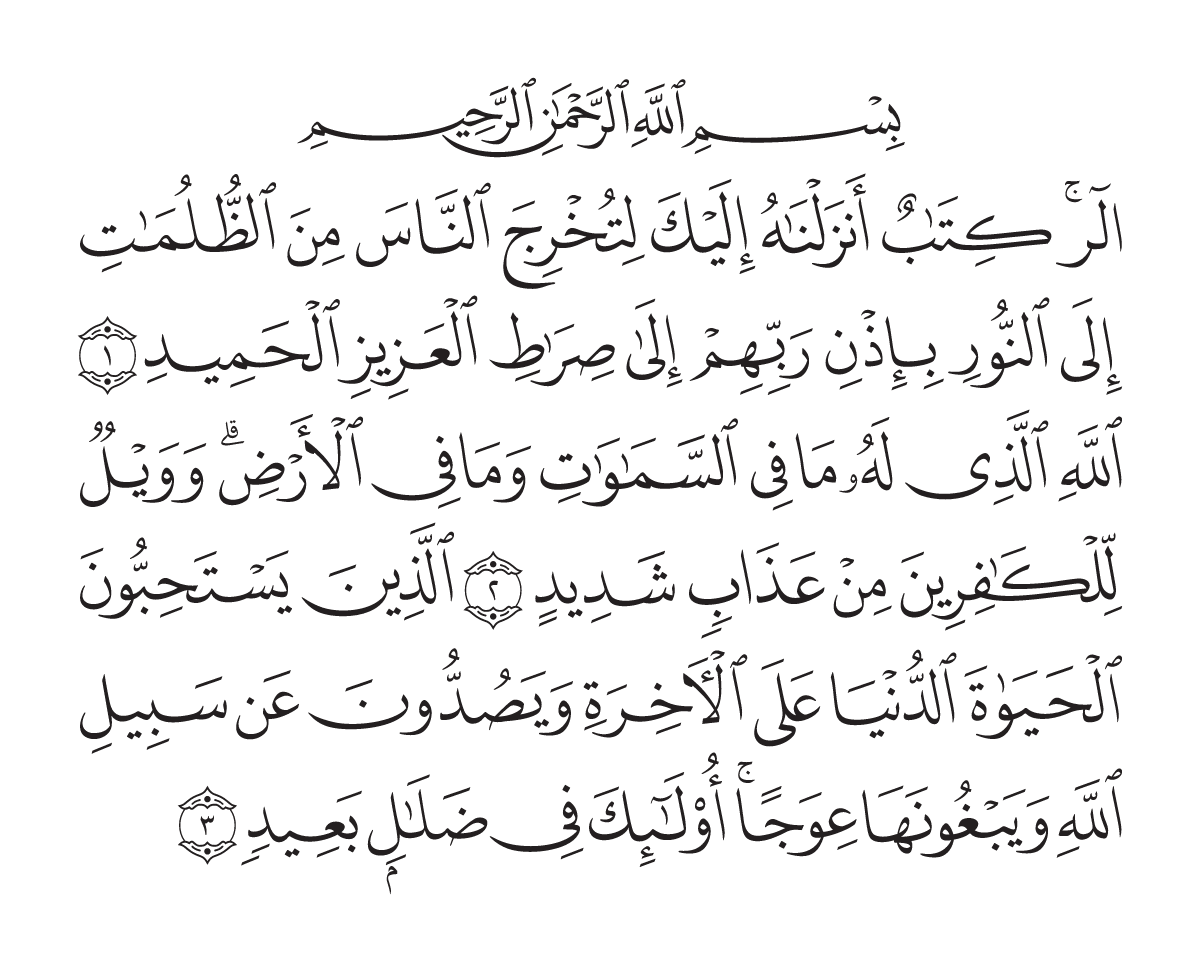 بِسْمِ ٱللَّهِ ٱلرَّحْمَـٰنِ ٱلرَّحِيمِ
الٓرۚ كِتَـٰبٌ أَنزَلْنَـٰهُ إِلَيْكَ لِتُخْرِجَ ٱلنَّاسَ مِنَ ٱلظُّلُمَـٰتِ
إِلَى ٱلنُّورِ بِإِذْنِ رَبِّهِمْ إِلَىٰ صِرَٰطِ ٱلْعَزِيزِ ٱلْحَمِيدِ ١
ٱللَّهِ ٱلَّذِى لَهُۥ مَا فِى ٱلسَّمَـٰوَٰتِ وَمَا فِى ٱلْأَرْضِۗ وَوَيْلٌ
لِّلْكَـٰفِرِينَ مِنْ عَذَابٍ شَدِيدٍ ٢ ٱلَّذِينَ يَسْتَحِبُّونَ
ٱلْحَيَوٰةَ ٱلدُّنْيَا عَلَى ٱلْـَٔاخِرَةِ وَيَصُدُّونَ عَن سَبِيلِ
ٱللَّهِ وَيَبْغُونَهَا عِوَجًاۚ أُو۟لَـٰٓئِكَ فِى ضَلَـٰلٍۭ بَعِيدٍ ٣